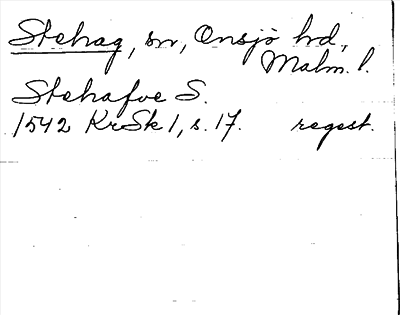 Stehag, sn, Onsjö hd,
Malm. l.
Stehafve S.
1542 KrSk 1, s. 17. regest.